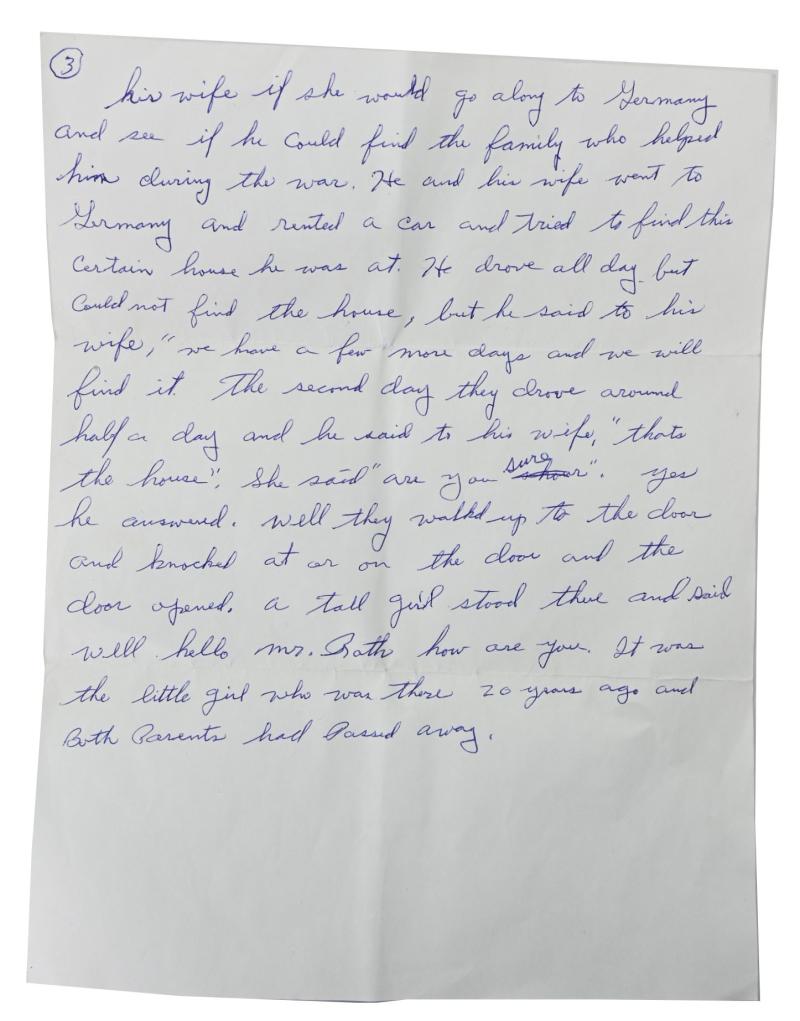 3
his wife if she would go along to Germany
and see if he could find the family who helped
him during the war. He and his wife went to
Germany and rented a car and tried to find this
certain house he was at. He drove all day but
could not find the house, but he said to his
wife, "we have a few more days and we will
find it. The second day they drove around
half a day and he said to his wife, "thats
the house". She said "are you sure". yes
he answered. well they walkd up to the door
and knocked at or on the door and the
door opened. a tall girl stood there and said
well hello mr. Rath how are you. It was
the little girl who was there 20 years ago and
Both Parents had Passed away.